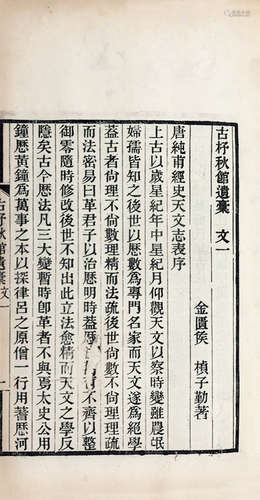 古杼秋館遺稾　文一
金匱侯　楨子勤著
唐純甫經史天文志表序
上古以歲星紀年中星紀月仰觀天文以察時變雖農氓
婦孺皆知之後世以歷數爲專門名家而天文遂爲絕學
益古者尙理不尙數理精而法疏後世尙數不尙理理疏
而法密易曰革君子以治歷明時蓋歷
者不齊以整
御零隨時修改後世不知出此立法愈精而天文之學反
隱矣古今歷法凡三大變暫時卽革者不與焉太史公用
鐘歷黃鐘爲萬事之本以探律呂之原僧一行用蓍歷河
古杼秋館遺稾 文一
一